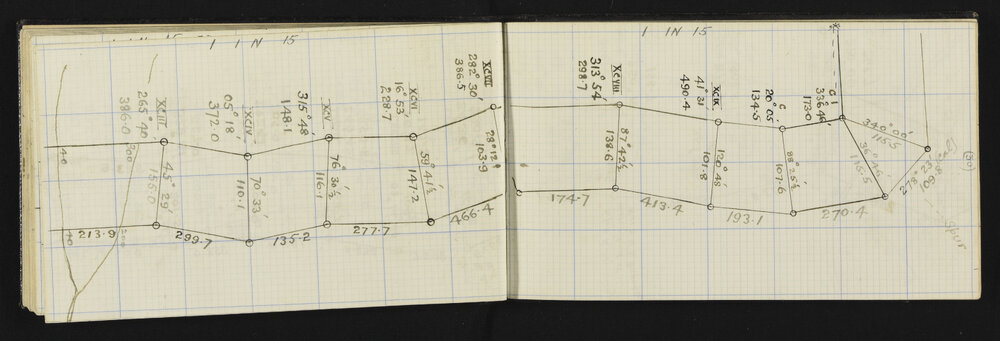 1 IN 15
1 IN 15
XCIII
265° 40'
386.0
XCIV
05° 18'
372.0
XCV
315° 48'
148.1
XCVI
16° 53'
228.7
XCVII
282° 30'
386.5
XCVIII
313° 54'
298.7
XCIX
41° 31'
490.4
C
20° 05'
134.5
C I
336° 46'
173.0
340° 00'
115.5
40
300
45° 29'
70° 33'
110.1
76° 30½'
116.1
59° 41½'
147.2
28° 12'
103.9
87° 42½'
138.6
120° 48'
101.8
88° 25½'
107.6
116.5
109.8
(50)
40
300
213.9
299.7
135.2
277.7
466.4
174.7
413.4
193.1
270.4
Spur